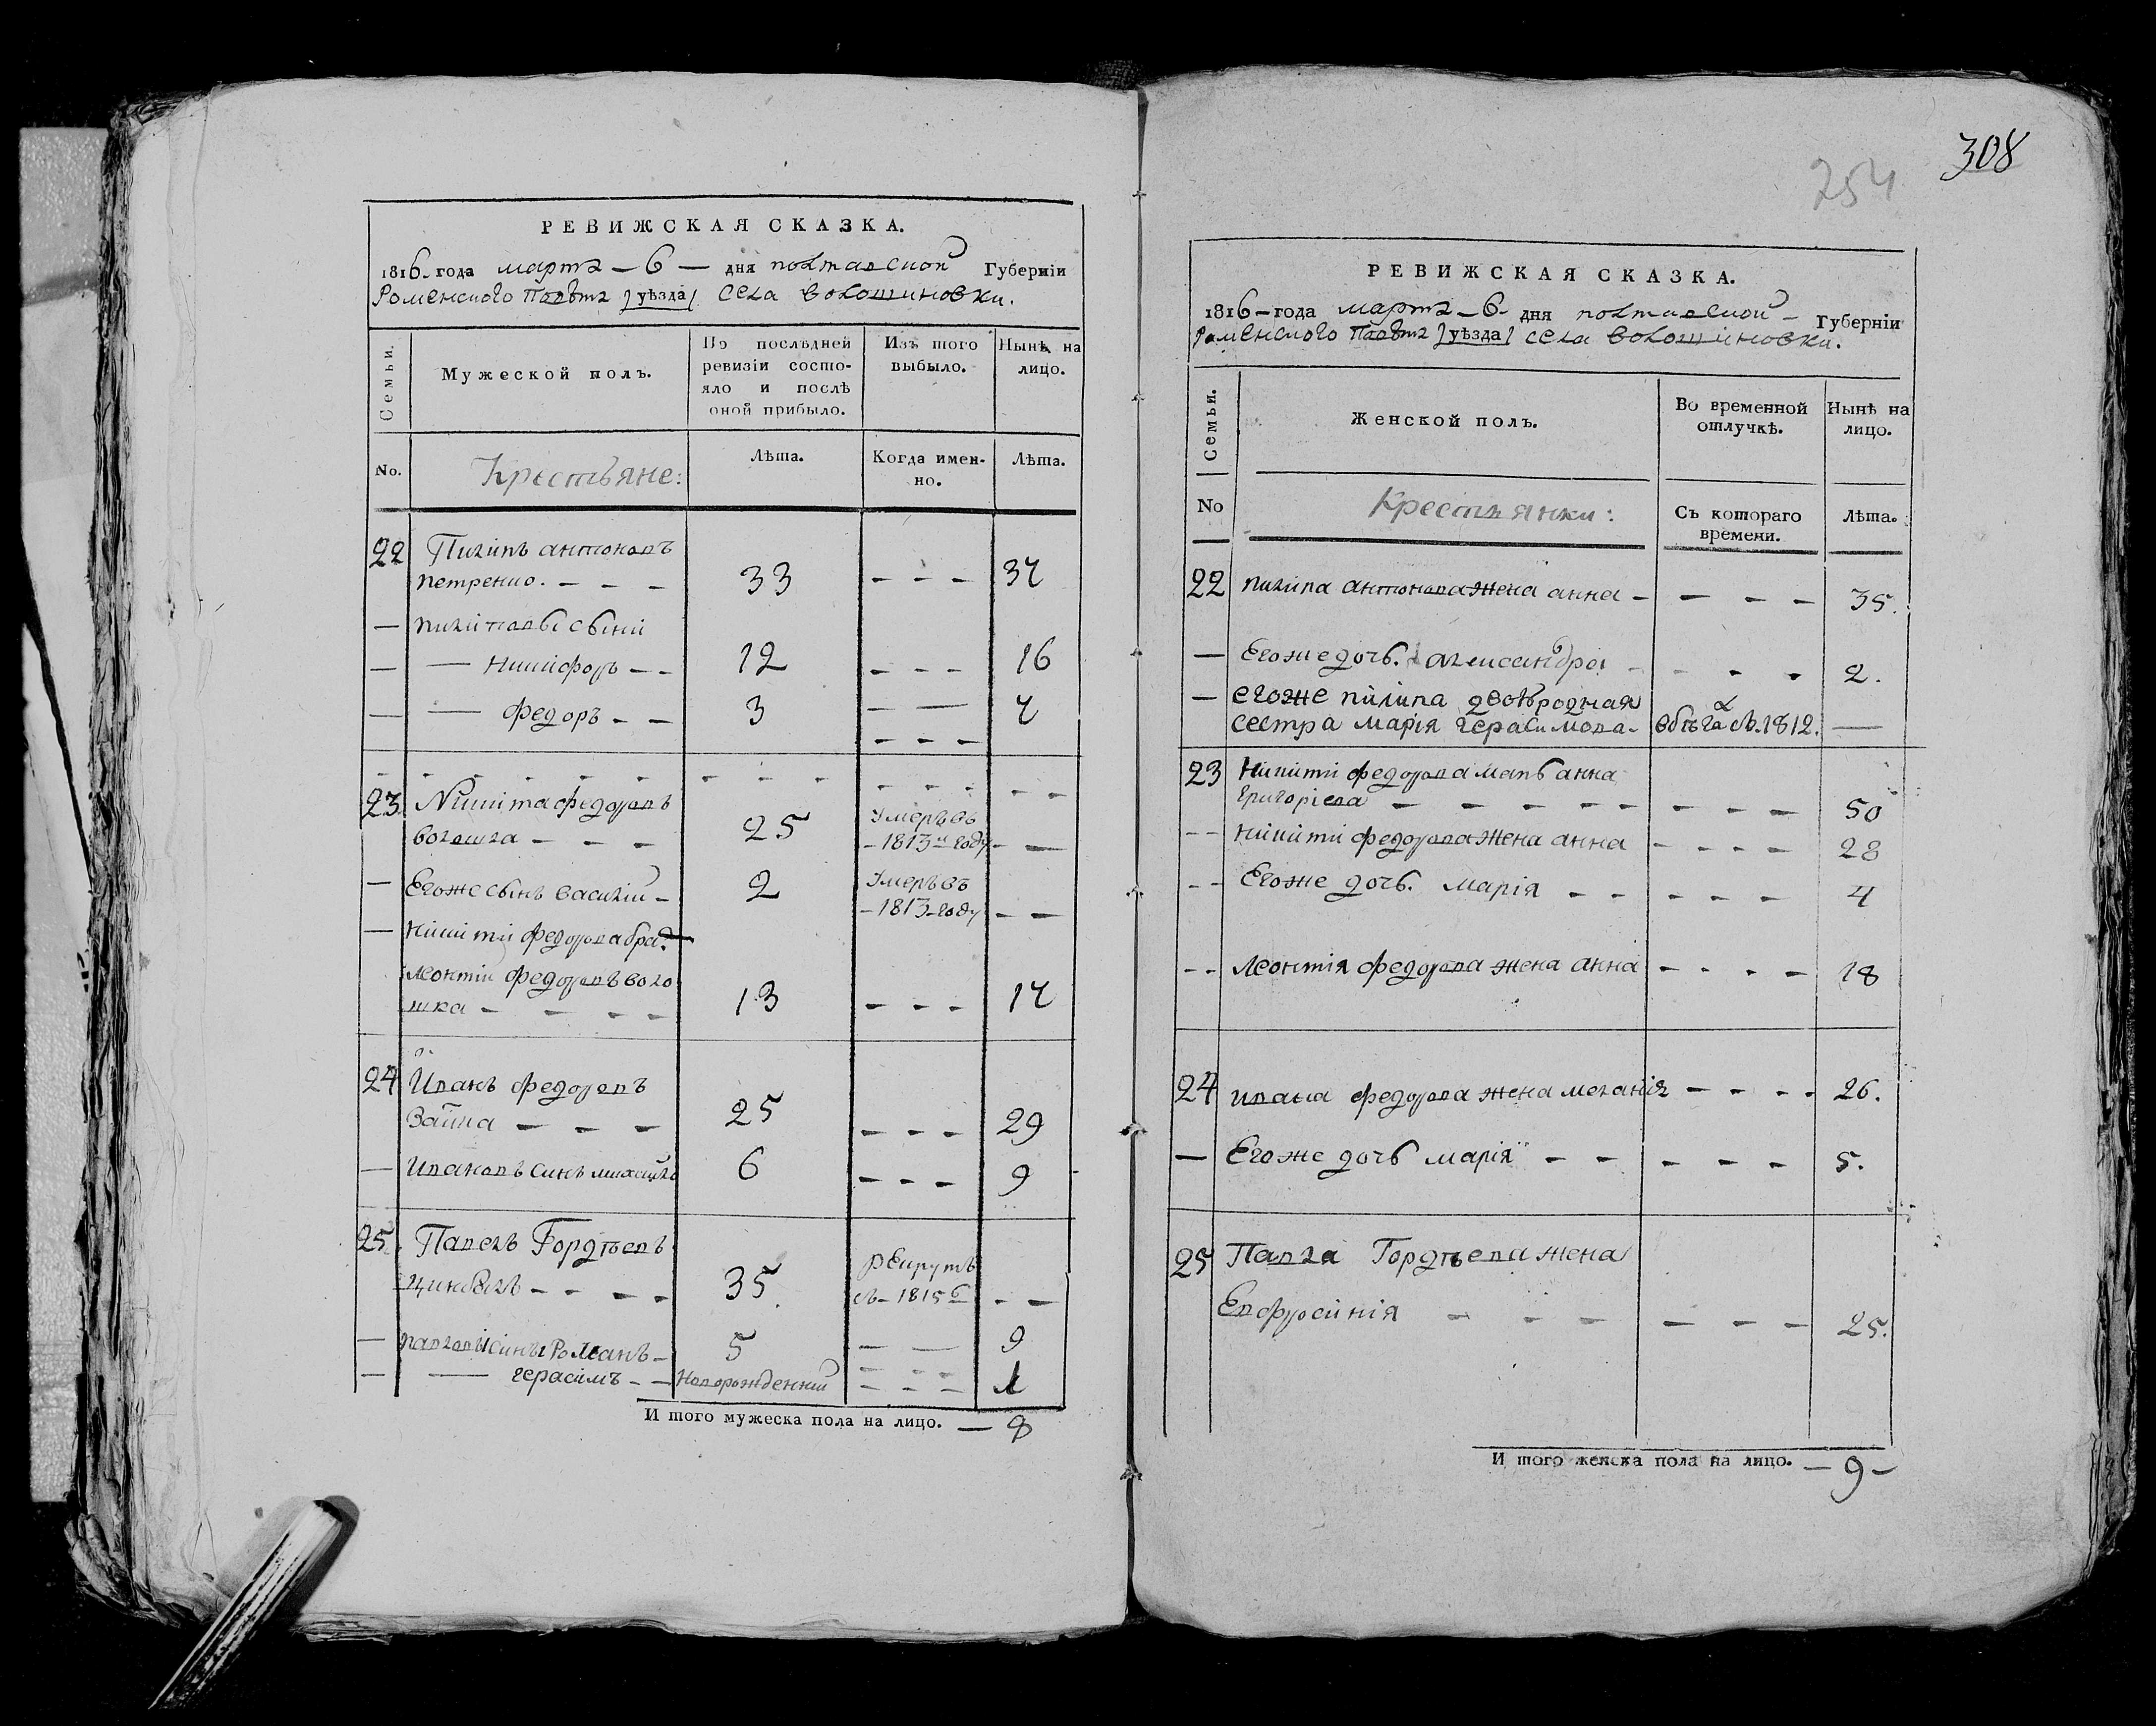 РЕВИЖСКАЯ СКАЗКА.
1816 года марта – 6 – дня полтавской Губерніи
Роменского Повѣта /уѣзда/ села Волошиновки.
Семьи.
Мужеской полъ.
По послѣдней ревизіи состо-
яло и послѣ
оной прибыло.
Изъ того
выбыло.
Нынѣ на
лицо.
No.
Крестьяне:
Лѣта.
Когда имен-
но.
Лѣта.
22 Пилипъ антоновъ
петренко. – – – 33 – – – 37
— пилиповы сыни
— — никифоръ – – 12 – – – 16
— — федоръ – – 3 — — 7
23 Никита федоровъ Умеръ въ
волошка – – – 25 – 1813 м году – —
— Егоже сынъ василій – 2 Умеръ въ
– 1813 – году – –
— никити федорова брат
леонтій федоровъ воло
шка – – – – 13 – – – 17
24 Иванъ федоровъ
Заика – – – 25 – – – 29
— Ивановъ синъ михайло 6 – – – 9
25. Павелъ Гордѣевъ рекрутъ
35 съ – 1815 г – –
— павловы сины Романъ – 5 — — 9
— — герасимъ – – Новорожденній – – – 1
И того мужеска пола на лицо. — 8
308
254
РЕВИЖСКАЯ СКАЗКА.
1816 – года марта – 6 – дня полтавской – Губерніи
Роменского Повѣта /уѣзда/ села Волошиновки.
Семьи.
Женской полъ.
Во временной
отлучкѣ.
Нынѣ на
лицо.
No
Крестьянки:
Съ котораго
времени.
Лѣта.
22 пилипа антонова жена анна – – – – 35.
— Егоже дочь. александра – – – – 2.
— егоже пилипа двоюродная
сестра марія герасимова – в бѣгах съ 1812. —
23 Никити федорова мать анна
григоріева – – – – – – – – 50
– – никити федорова жена анна – – – – 28
– – Егоже дочь. марія – – – – – 4
– – леонтія федорова жена анна – – – – 18
24 ивана федорова жена меланія – – – – 26.
— Егоже дочь марія – – – – – 5.
25 Павла Гордѣева жена
Евфросинія – – – – – – 25.
И того женска пола на лицо. – 9 –